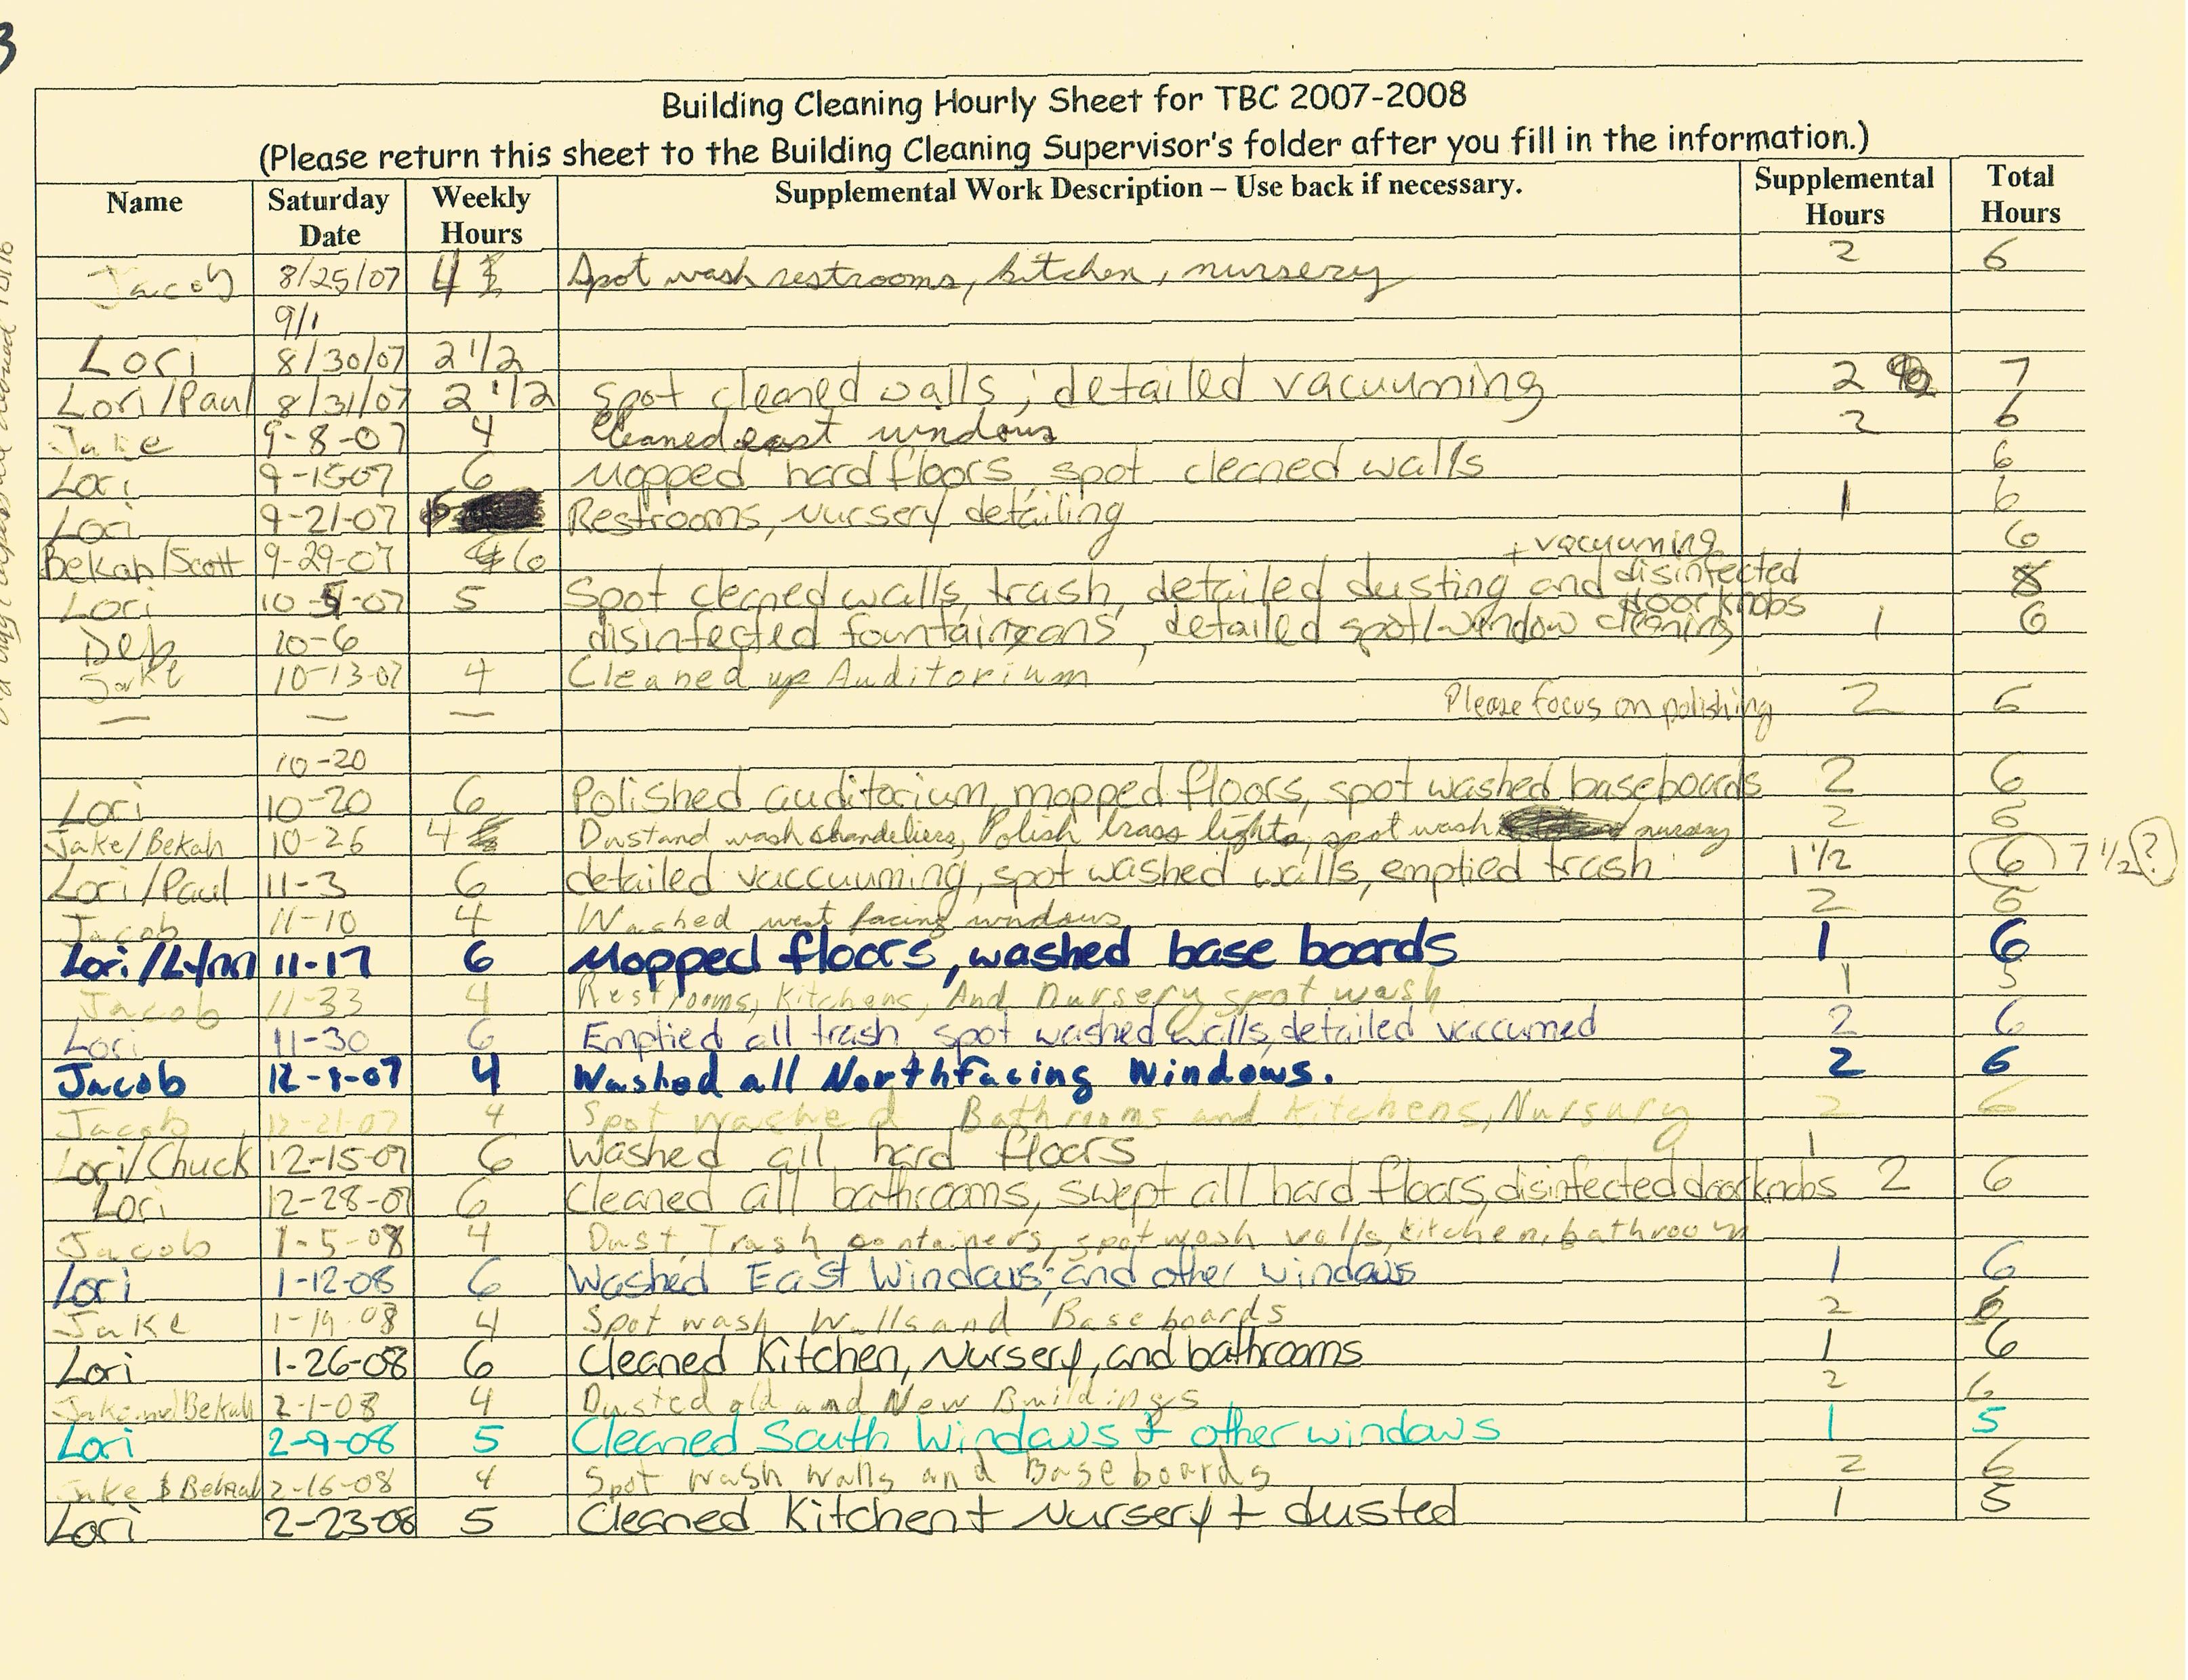 3
Building Cleaning Hourly Sheet for TBC 2007-2008
(Please return this sheet to the Building Cleaning Supervisor's folder after you fill in the information.)
Name Saturday Date Weekly Hours Supplemental Work Description – Use back if necessary. Supplemental Hours Total Hours
Jacob 8/25/07 4 Spot wash restrooms, kitchen, nursery 2 6
9/1
Lori 8/30/07 2 1/2
Lori/Paul 8/31/07 2 1/2 Spot cleaned walls; detailed vacuuming 2 7
Jake 9-8-07 4 Cleaned east windows 2 6
Lori 9-15-07 6 Mopped hard floors, spot cleaned walls 6
Lori 9-21-07 Restrooms, Nursery detailing 1 6
Bekah/Scott 9-29-07 6 6
+ vacuuming
Lori 10-5-07 5 Spot cleaned walls, trash, detailed dusting and disinfected doorknobs 8
Deb 10-6 disinfected fountains, detailed spot/window cleaning 1 6
Jake 10-13-07 4 Cleaned up Auditorium
— — — Please focus on polishing 2 6
10-20
Lori 10-20 6 Polished auditorium, mopped floors, spot washed baseboards 2 6
Jake/Bekah 10-26 4 Dust and wash chandeliers, Polish brass lights, spot wash nursery 2 6
Lori/Paul 11-3 6 detailed vaccuuming, spot washed walls, emptied trash 1 1/2 6 7 1/2 ?
Jacob 11-10 4 Washed west facing windows 2 6
Lori/Lynn 11-17 6 Mopped floors, washed base boards 1 6
Jacob 11-33 4 Restrooms, Kitchens, And Nursery spot wash 1 5
Lori 11-30 6 Emptied all trash, spot washed walls, detailed vaccumed 2 6
Jacob 12-8-07 4 Washed all North facing Windows. 2 6
Jacob 12-21-07 4 Spot washed Bathrooms and Kitchens, Nursury 2 6
Lori/Chuck 12-15-07 6 Washed all hard floors 1
Lori 12-28-07 6 Cleaned all bathrooms, swept all hard floors, disinfected doorknobs 2 6
Jacob 1-5-08 4 Dust, Trash containers, spot wash walls, kitchen, bathroom
Lori 1-12-08 6 Washed East Windows, and other windows 1 6
Jake 1-19-08 4 Spot wash Walls and Baseboards 2 6
Lori 1-26-08 6 Cleaned Kitchen, Nursery, and bathrooms 1 6
Jake and Bekah 2-1-08 4 Dusted old and New Buildings 2 6
Lori 2-9-08 5 Cleaned South Windows + other windows 1 5
Jake & Bekah 2-16-08 4 Spot wash walls and Baseboards 2 6
Lori 2-23-08 5 Cleaned Kitchen + Nursery + dusted 1 5